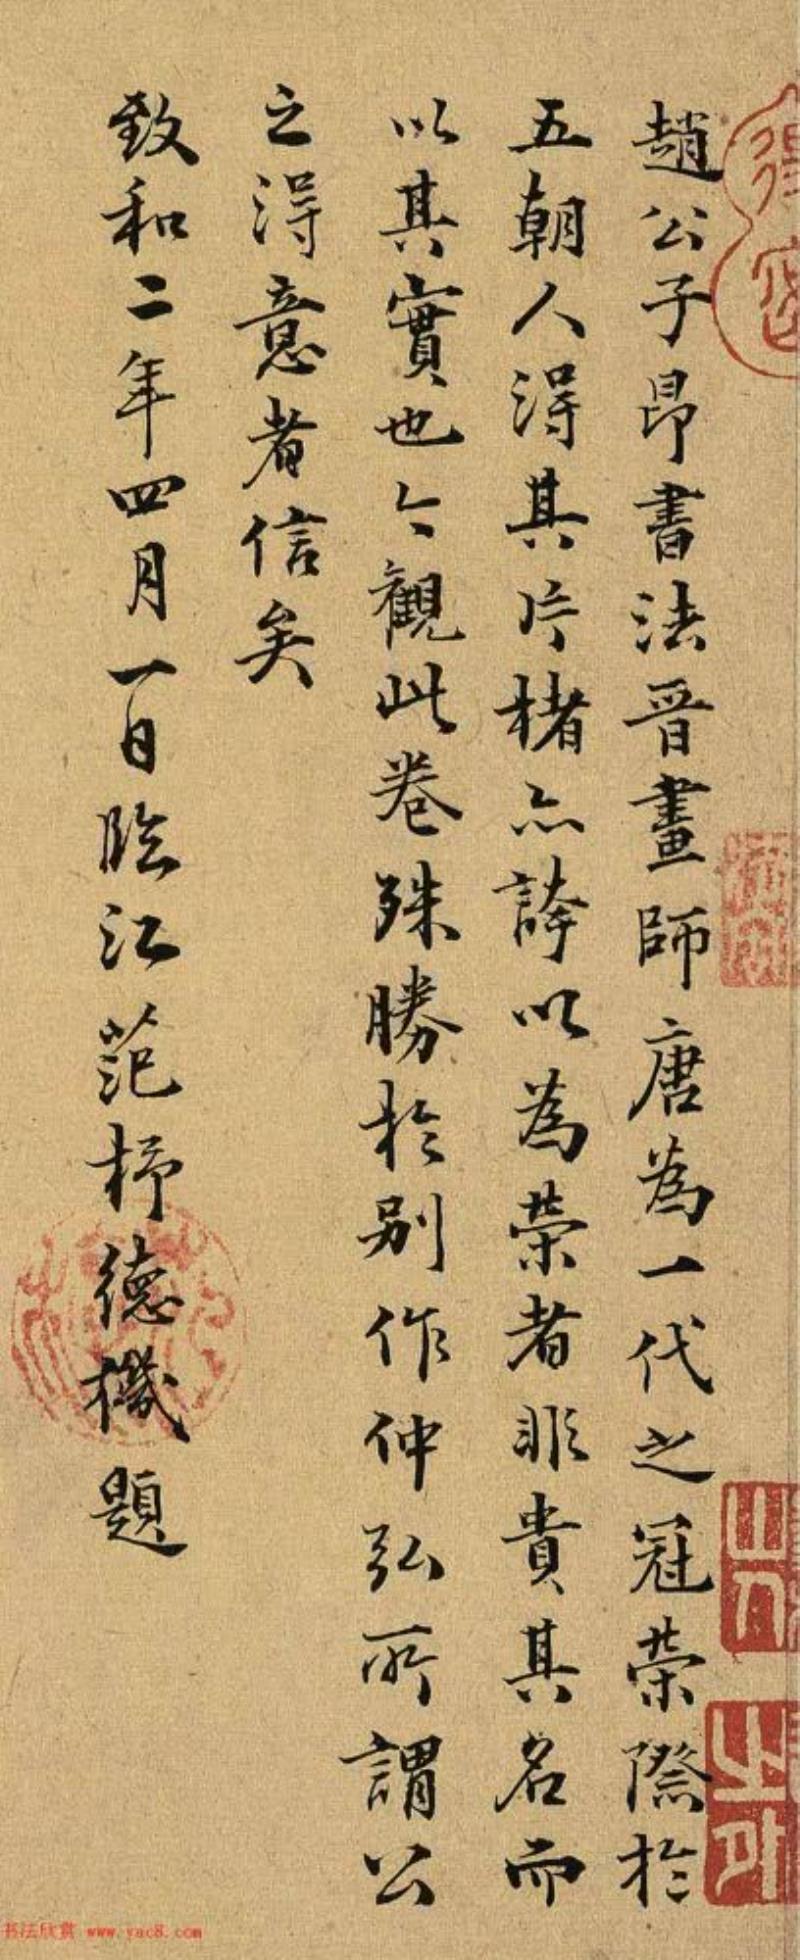 趙公子昂書法晉畫師唐為一代之冠榮際於
五朝人得其片楮亦誇以為榮者非貴其名而
以其實也今觀此卷殊勝於別作仲弘所謂公
之得意者信矣
致和二年四月一日臨江范梈德機題
书法欣赏 www.yac8.com